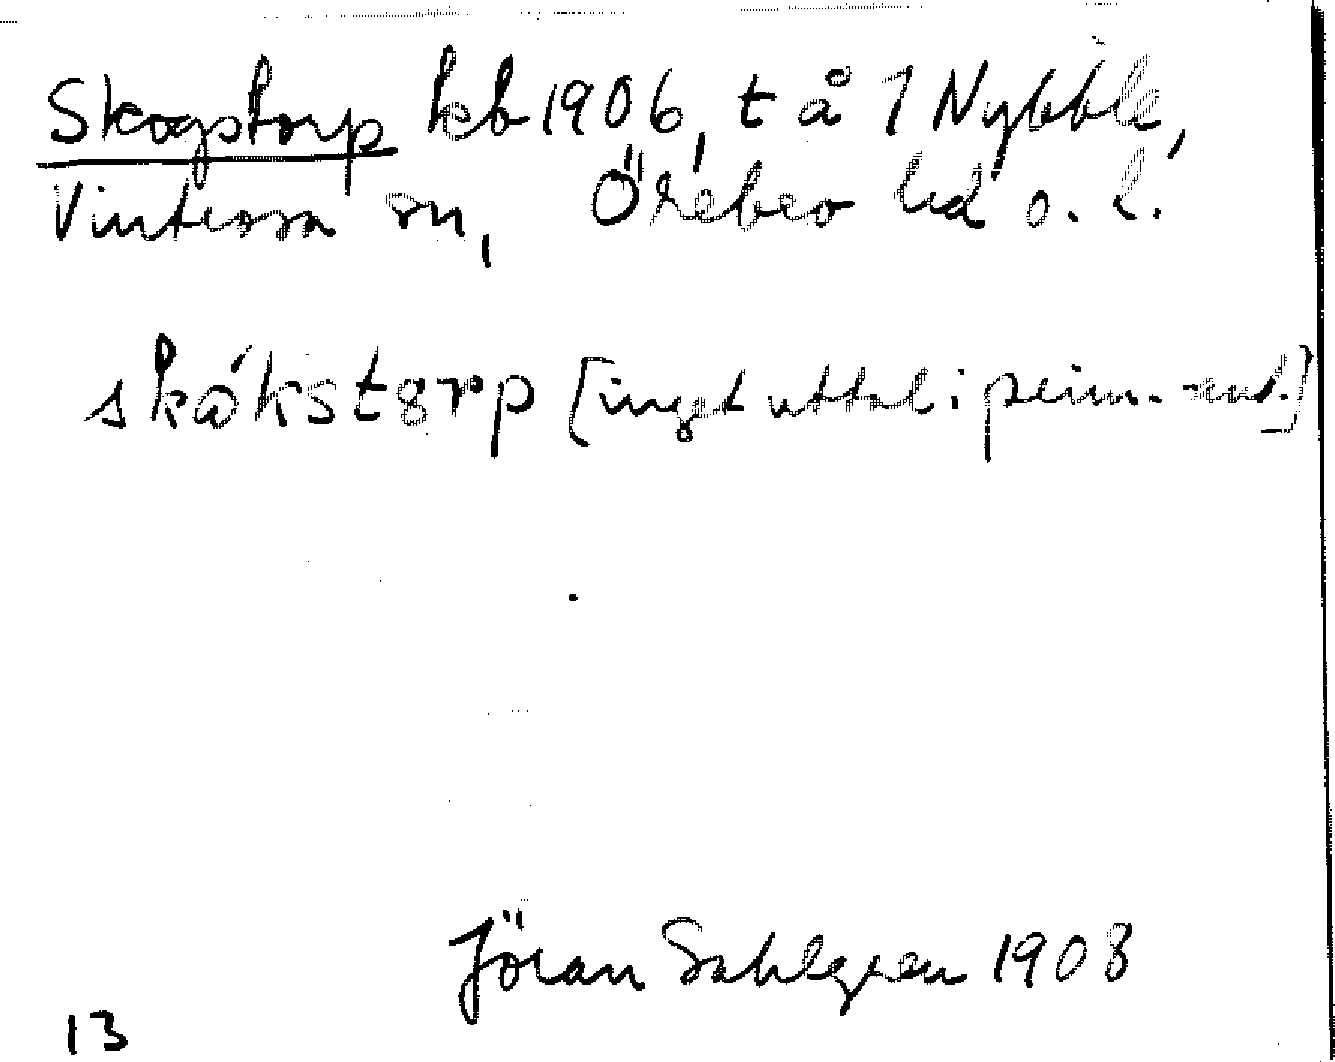 Skogstorp kb 1906, t å 1 Nybble,
Vintrosa sn, Örebro hd o. l.
skákstórp [inget uttal i prim.-red.]
Jöran Sahlgren 1908
13